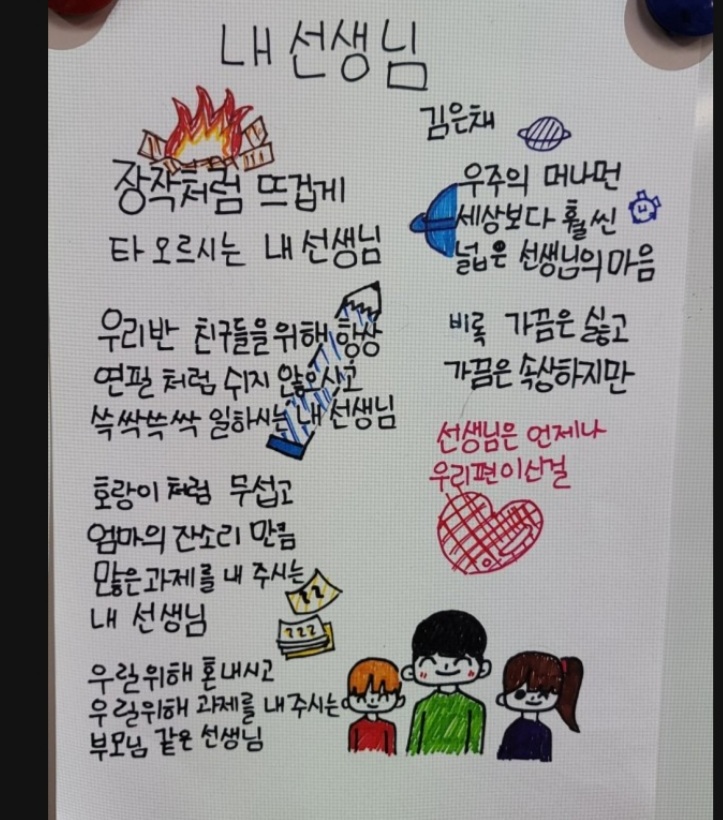 내 선생님
김은채
장작처럼 뜨겁게
타오르시는 내 선생님
우리반 친구들을 위해 항상
연필처럼 쉬지 않으시고
쓱싹쓱싹 일하시는 내 선생님
호랑이처럼 무섭고
엄마의 잔소리 만큼
많은 과제를 내 주시는
내 선생님
우릴 위해 혼내시고
우릴 위해 과제를 내 주시는
부모님 같은 선생님
우주의 머나먼
세상보다 훨씬
넓은 선생님의 마음
비록 가끔은 싫고
가끔은 속상하지만
선생님은 언제나
우리편이신걸